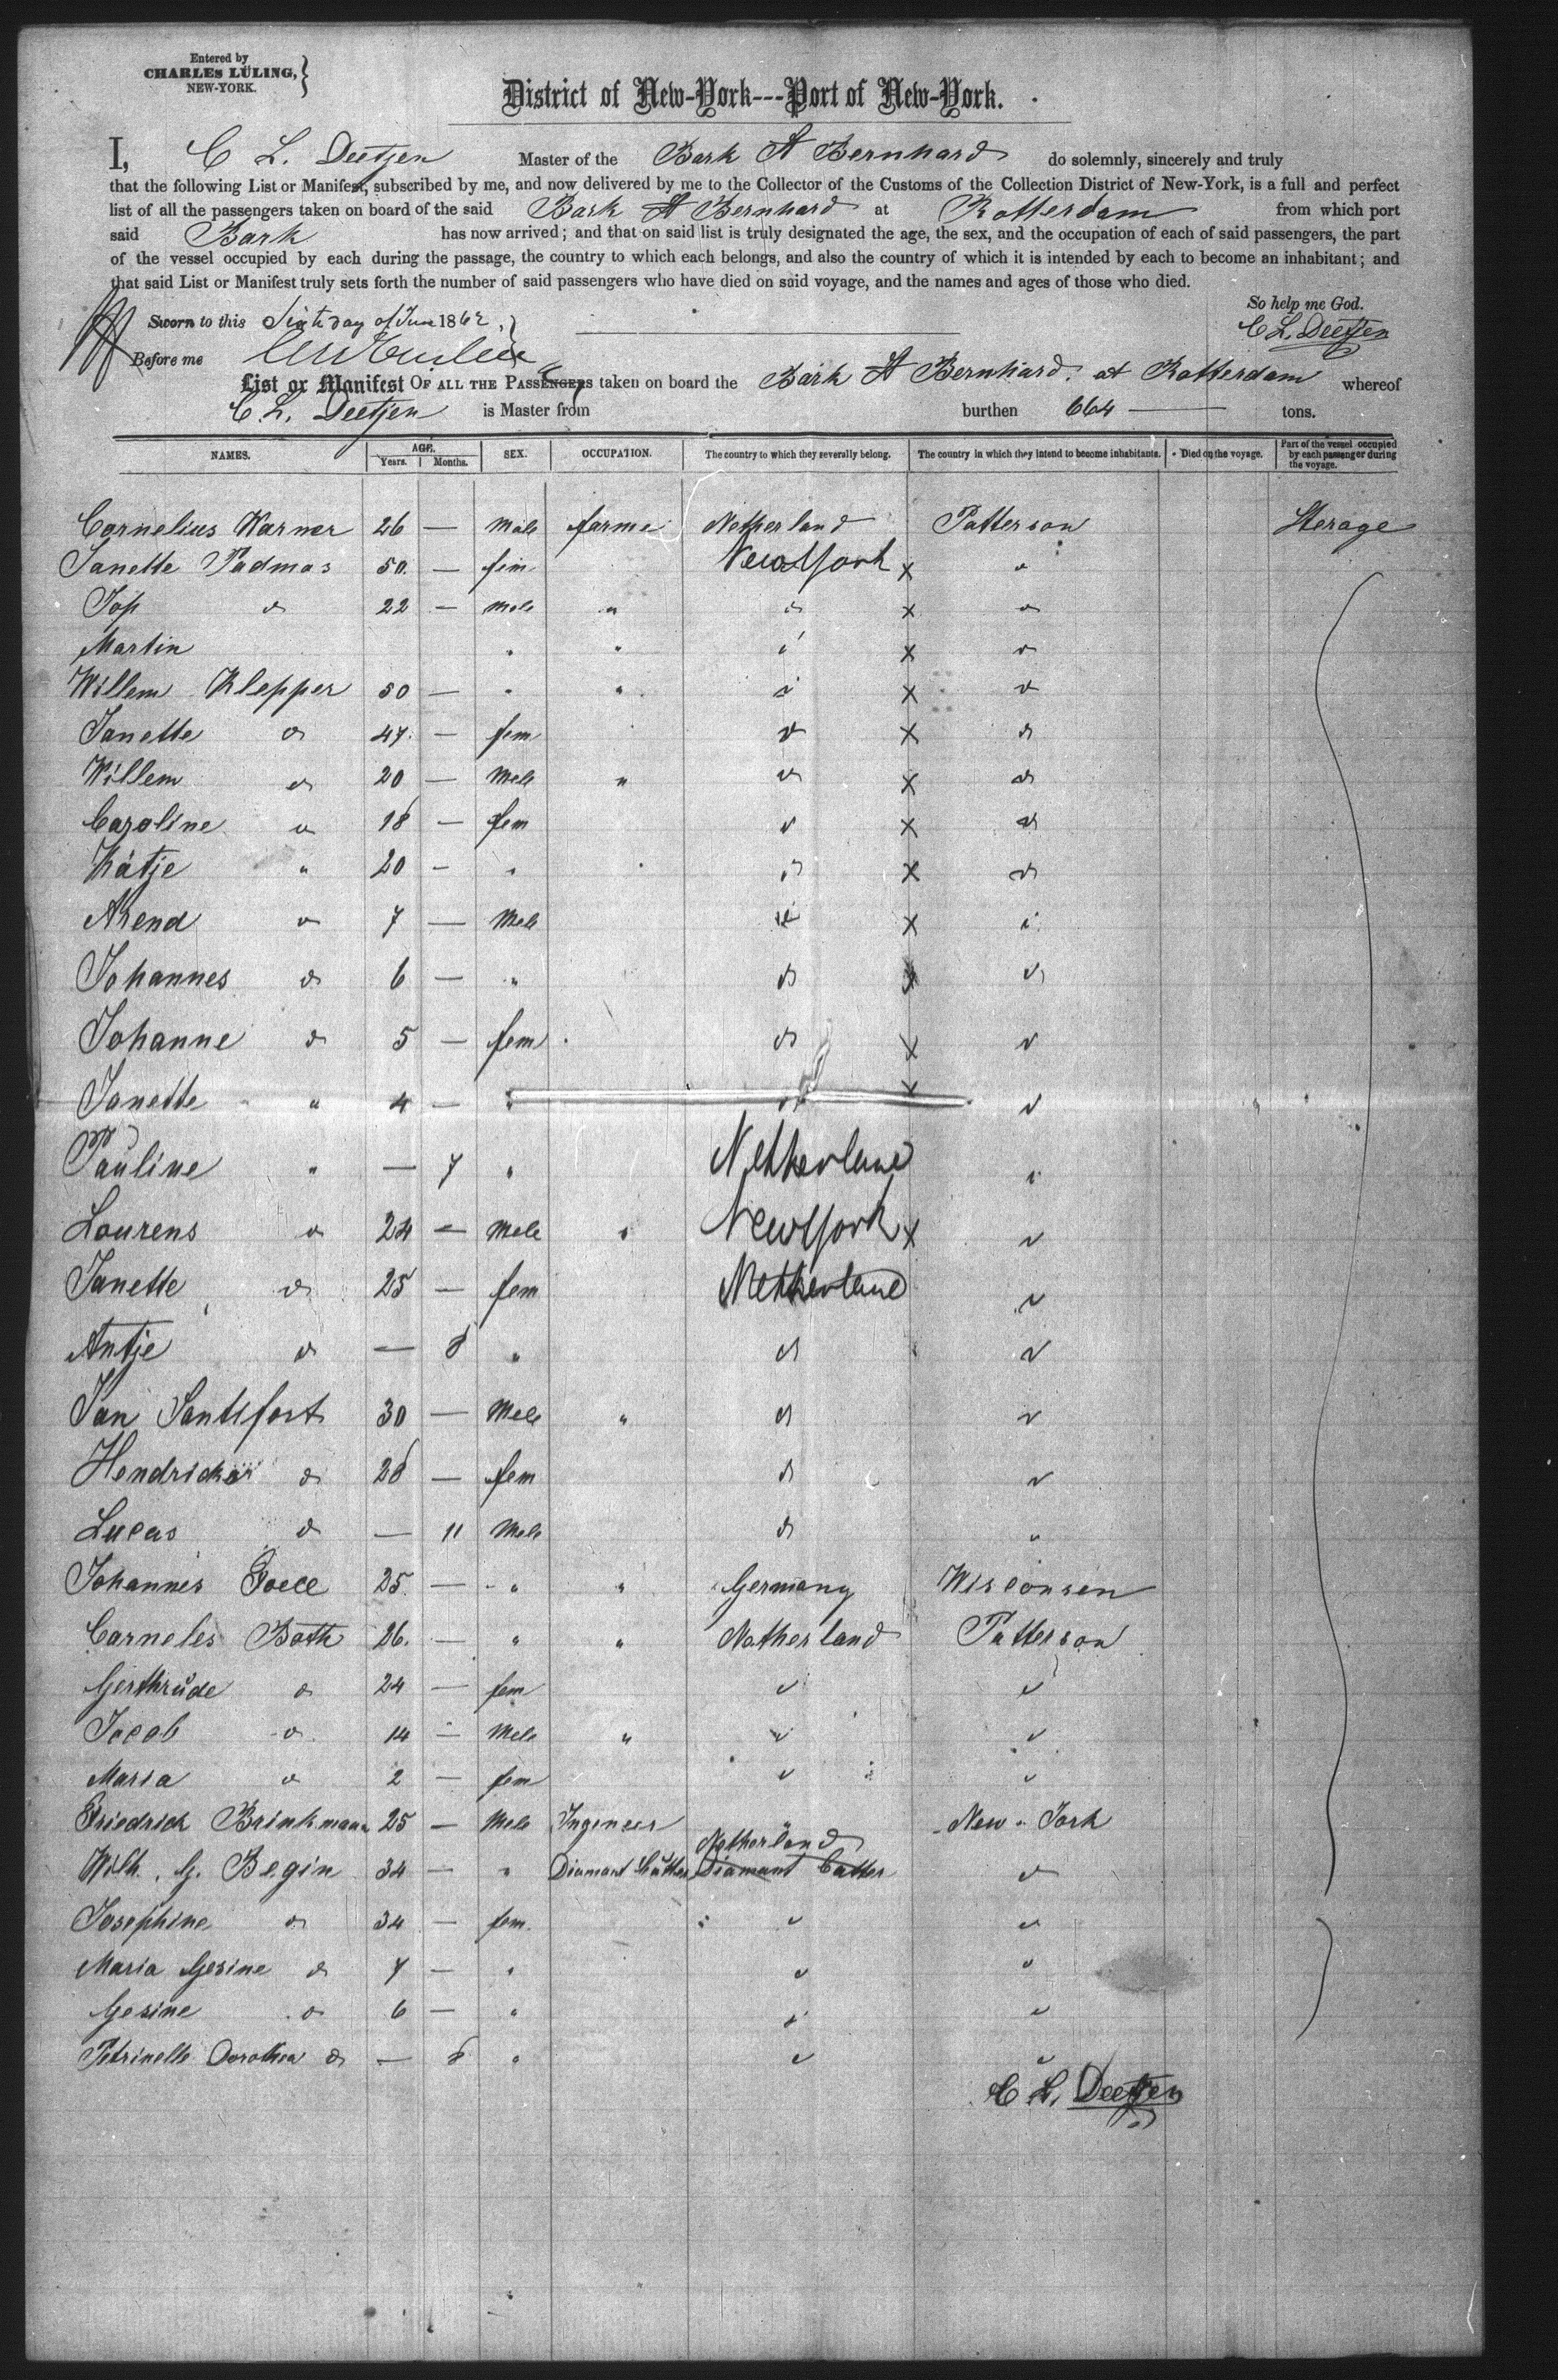 Entered by
CHARLES LÜLING,
NEW-YORK.
District of New-York---Port of New-York.
I, C L. Deetjen Master of the Bark A Bernhard do solemnly, sincerely and truly
that the following List or Manifest, subscribed by me, and now delivered by me to the Collector of the Customs of the Collection District of New-York, is a full and perfect
list of all the passengers taken on board of the said Bark A Bernhard at Rotterdam from which port
said Bark has now arrived; and that on said list is truly designated the age, the sex, and the occupation of each of said passengers, the part
of the vessel occupied by each during the passage, the country to which each belongs, and also the country of which it is intended by each to become an inhabitant; and
that said List or Manifest truly sets forth the number of said passengers who have died on said voyage, and the names and ages of those who died.
So help me God.
Sworn to this day of 1862. C L. Deetjen
Before me
List or Manifest OF ALL THE PASSENGERS taken on board the Bark A Bernhard. at Rotterdam whereof
C. L. Deetjen is Master from burthen 664 — tons.
NAMES. AGE. Years. Months. SEX. OCCUPATION. The country to which they severally belong. The country in which they intend to become inhabitants. Died on the voyage. Part of the vessel occupied by each passenger during the voyage.
Cornelius Warner 26 — Male farme Netherland Patterson Sterage
Janette Padmos 50. — fem New York x "
Jop do 22 — Male " do x do
Martin " " " x do
Willem Klepper 50 — " " " x do
Janette do 47. — fem do x do
Willem do 20 — Male " do x do
Caroline do 18 — fem do x do
Kätje " 20 — " do x do
Arend do 7 — Male " x "
Johannes do 6 — " do x do
Johanne do 5 — fem do x do
Janette " 4 — " " x do
Pauline " — 7 " Netherland "
Lourens do 24 — Male " New York x do
Janette do 25 — fem Netherland do
Antje do — 8 " do do
Jan Santifort 30 — Male " do do
Hendricka do 28 — fem do do
Lucas do — 11 Male do "
Johannes 25. — " " Germany Wisconsen
Carneles Both 26. — " " Netherland Patterson
Gerthrüde do 24 — fem do do
Jacob do 14 — Male " do do
Maria do 2 — fem do do
Friedrick Brinkmann 25 — Male Ingeneer " New-York
Wilh. G. Begin 34 — " Diamant Cutter Netherland Diamant Cutter do
Josephine do 34 — fem. do do
Maria Gesine do 7 — " do do
Gesine do 6 — " do do
Petrinelle Dorothea do — 8 " do do
C. L. Deetjen